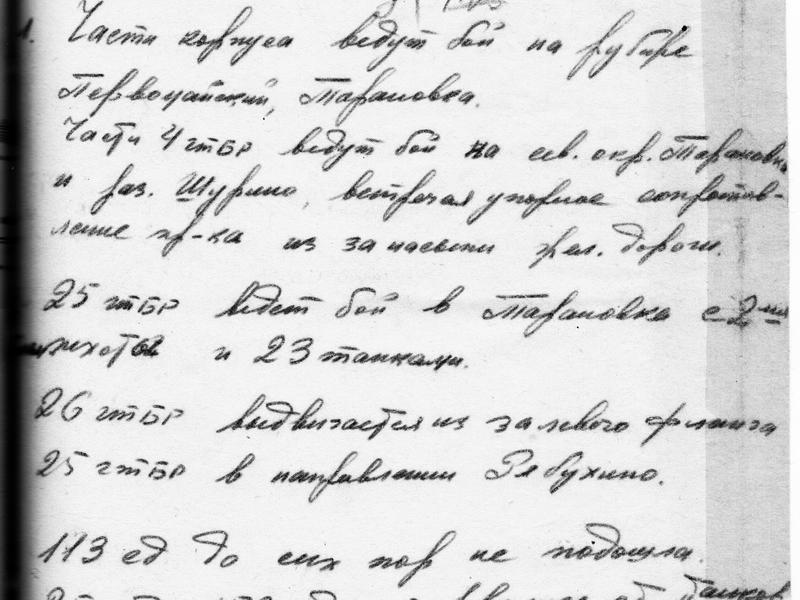 1. Части корпуса ведут бой на рубеже
Первомайский, Тарановка.
Части 4 гтБр ведут бой на сев. окр. Тарановки
и раз. Шурино, встречая упорное сопротив-
ление пр-ка из за насыпи жел. дороги.
25 гтБр ведет бой в Тарановка с 2мя
пехоты и 23 танками.
26 гтБр выдвигается из за левого фланга
25 гтБр в направлении Рябухино.
113 сд до сих пор не подошла.
танков